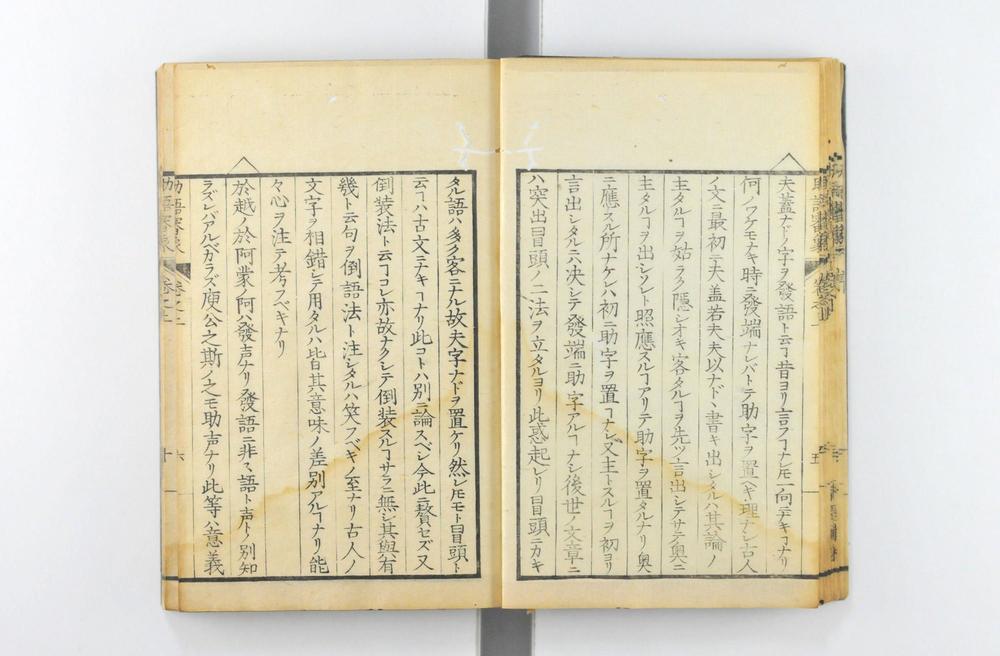 夫蓋ナドノ字ヲ發語ト云ヿ昔ヨリ言フヿナレ𪜈一向ニナキヿナリ
何ノワケモナキ時ニ發端ナレバトテ助字ヲ置ベキ理ナシ古人
ノ文ニ最初ニ夫蓋若夫夫以ナドヽ書キ出シタルハ其論ノ
主タルヿヲ姑ラク隠シオキ客タルヿヲ先ツ言出シテサテ奥ニ
主タルヿヲ出シタレト照應スルヿアリテ助字ヲ置タルナリ奥
ニ應スル所ナケレハ初ニ助字ヲ置ヿナシ又主トスルヿヲ初ヨリ
言出シタルニハ决シテ發端ニ助字アルヿナシ後世ノ文章ニ
ハ突出冒頭ノ二法ヲ立タルヨリ此惑起レリ冒頭ニカキ
タル語ハ多ク客ニナル故夫字ナドヲ置ケリ然レ𪜈モト冒頭ト
云ヿハ古文ニナキヿナリ此コトハ別ニ論スベシ今此ニ贅セズ又
倒装法ト云ヿコレ亦故ナクシテ倒装スルヿサラニ無シ其與有
幾ト云句ヲ倒語法ト注シタルハ笑フベキノ至ナリ古人ノ
文字ヲ相錯シテ用タルハ皆其意味ノ差別アルヿナリ能
々心ヲ注テ考スベキナリ
於越ノ於阿蒙ノ阿ハ發声ナリ發語ニ非ス語ト声トノ別知
ラズンバアルベカラズ庾公之斯ノ之モ助声ナリ此等ハ意義
助語審象
卷之上